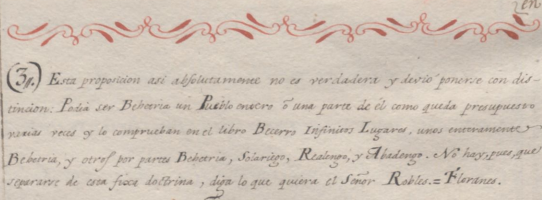 en
(3ª.) Esta proposicion asi absolutamente no es verdadera y devió ponerse con dis-
tincion: Podia ser Behetria un Pueblo entero ō una parte de él como queda presupuesto
varias veces y lo comprueban en el libro Becerro Infinitos Lugares, unos enteramente
Behetria, y otros por partes Behetria, Solariego, Realengo, y Abadengo. No hay, pues, que
separarse de esta fixa doctrina, diga lo que quiera el Señor Robles.= Floranes.